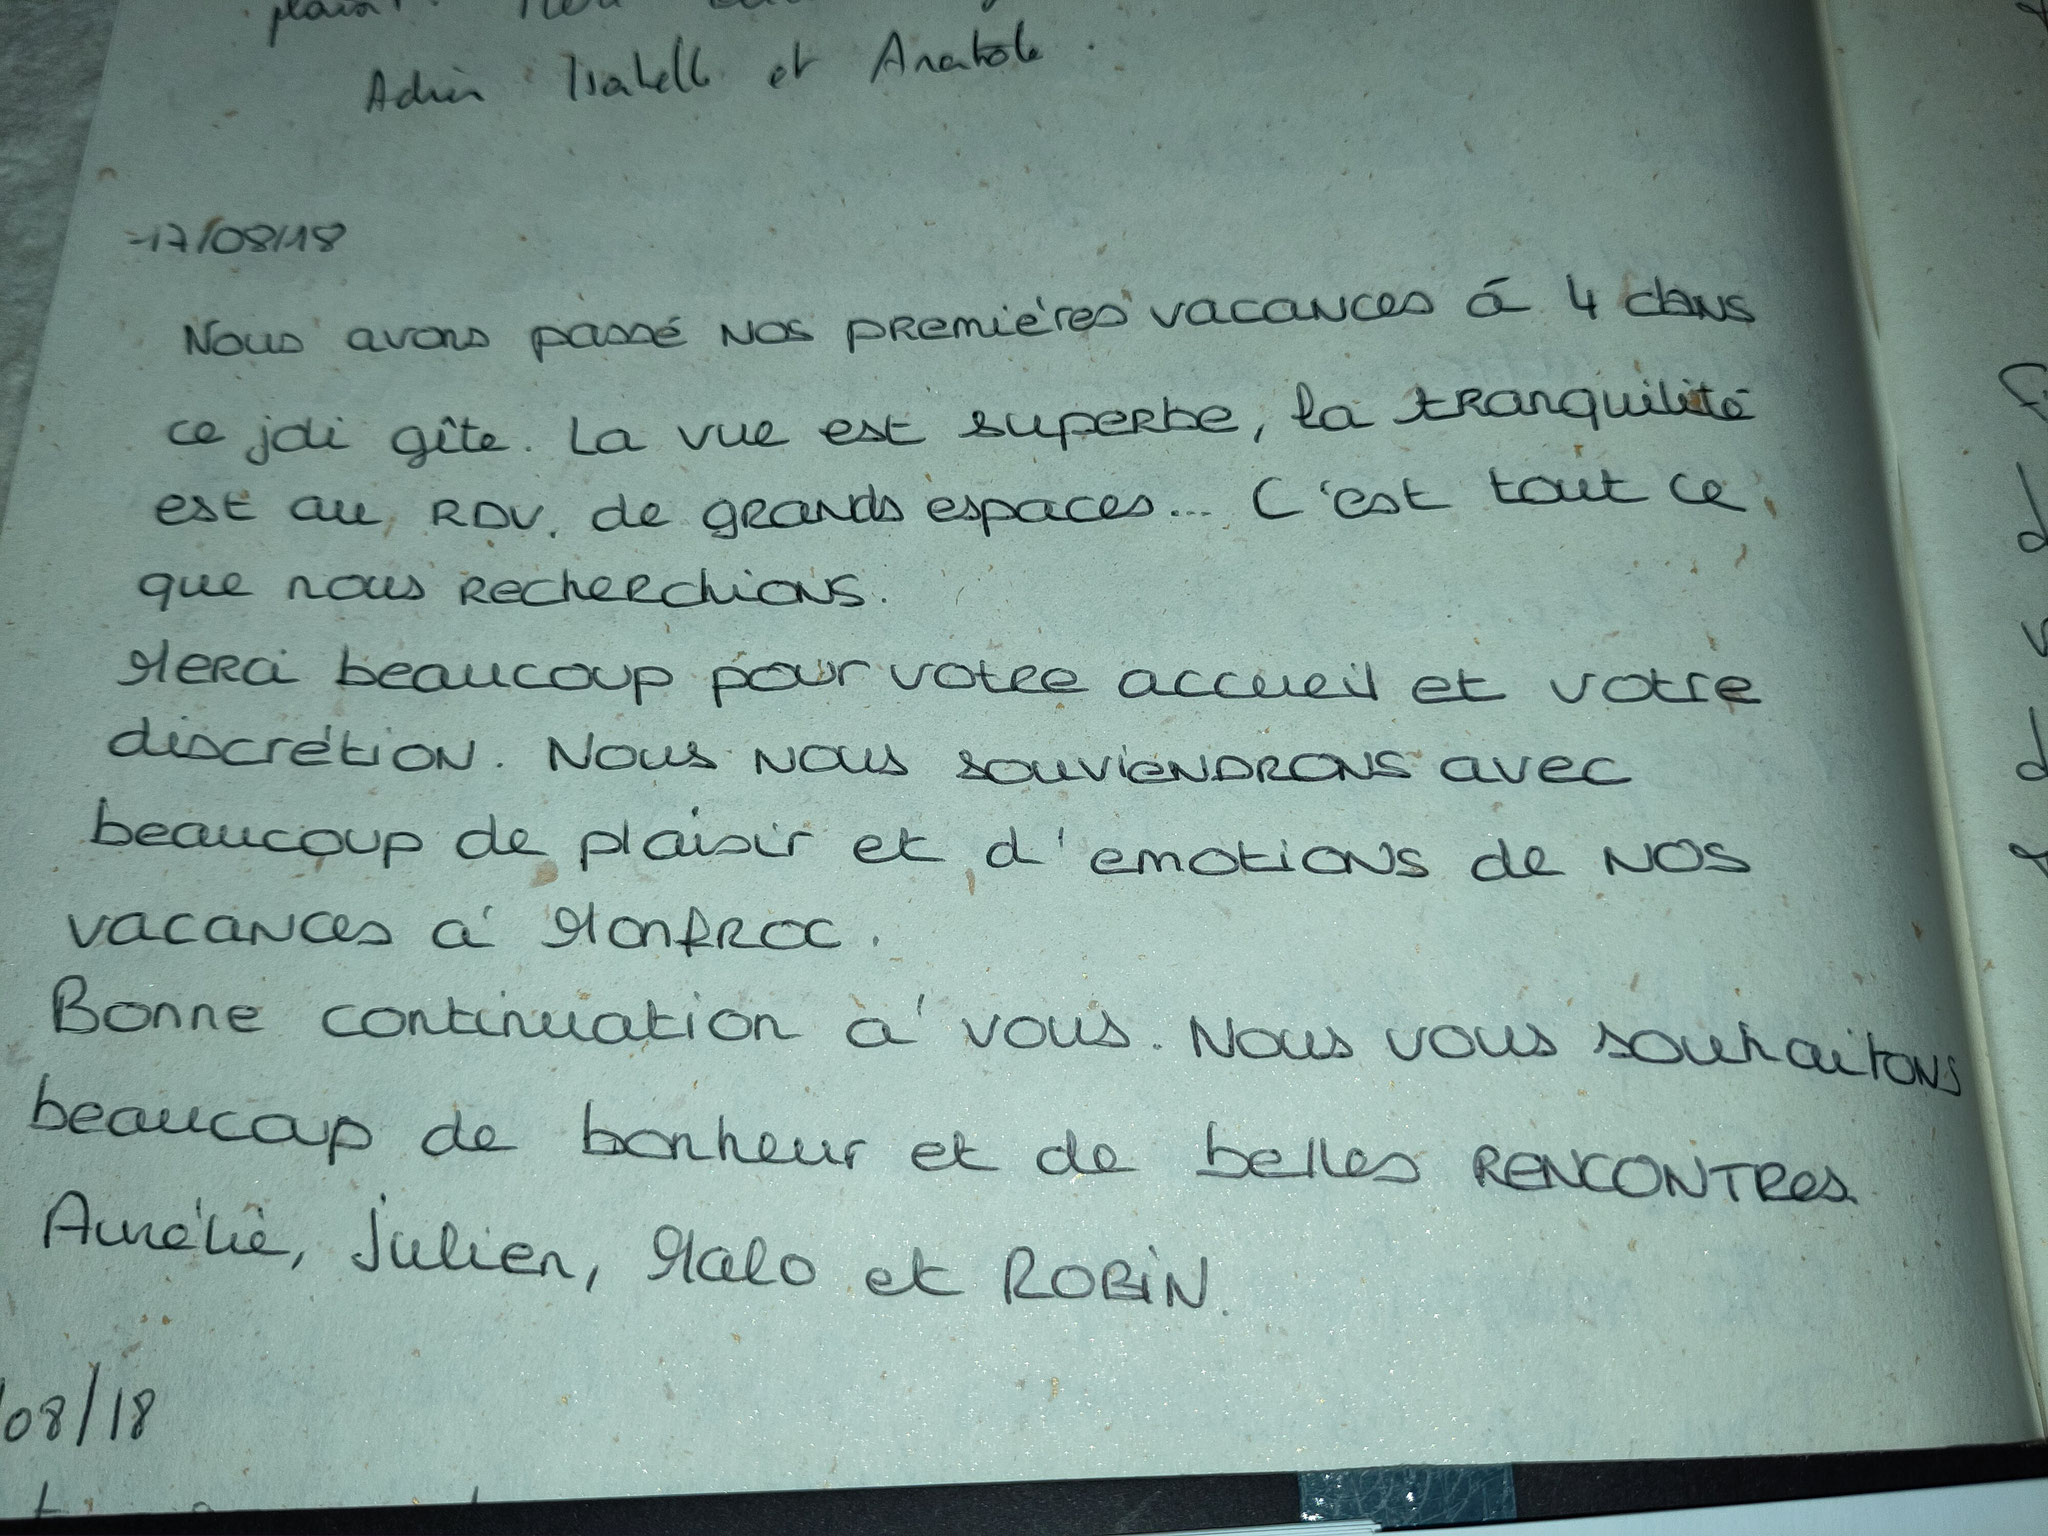 Isabelle et Anatole.
17/08/18
Nous avons passé nos premières vacances à 4 dans
ce joli gîte. La vue est superbe, la tranquilité
est au RDV, de grands espaces... C'est tout ce
que nous recherchions.
Merci beaucoup pour votre accueil et votre
discrétion. Nous nous souviendrons avec
beaucoup de plaisir et d'emotions de nos
vacances à Monfroc.
Bonne continuation à vous. Nous vous souhaitons
beaucoup de bonheur et de belles RENCONTRES
Aurélie, Julien, Malo et ROBIN.
/08/18